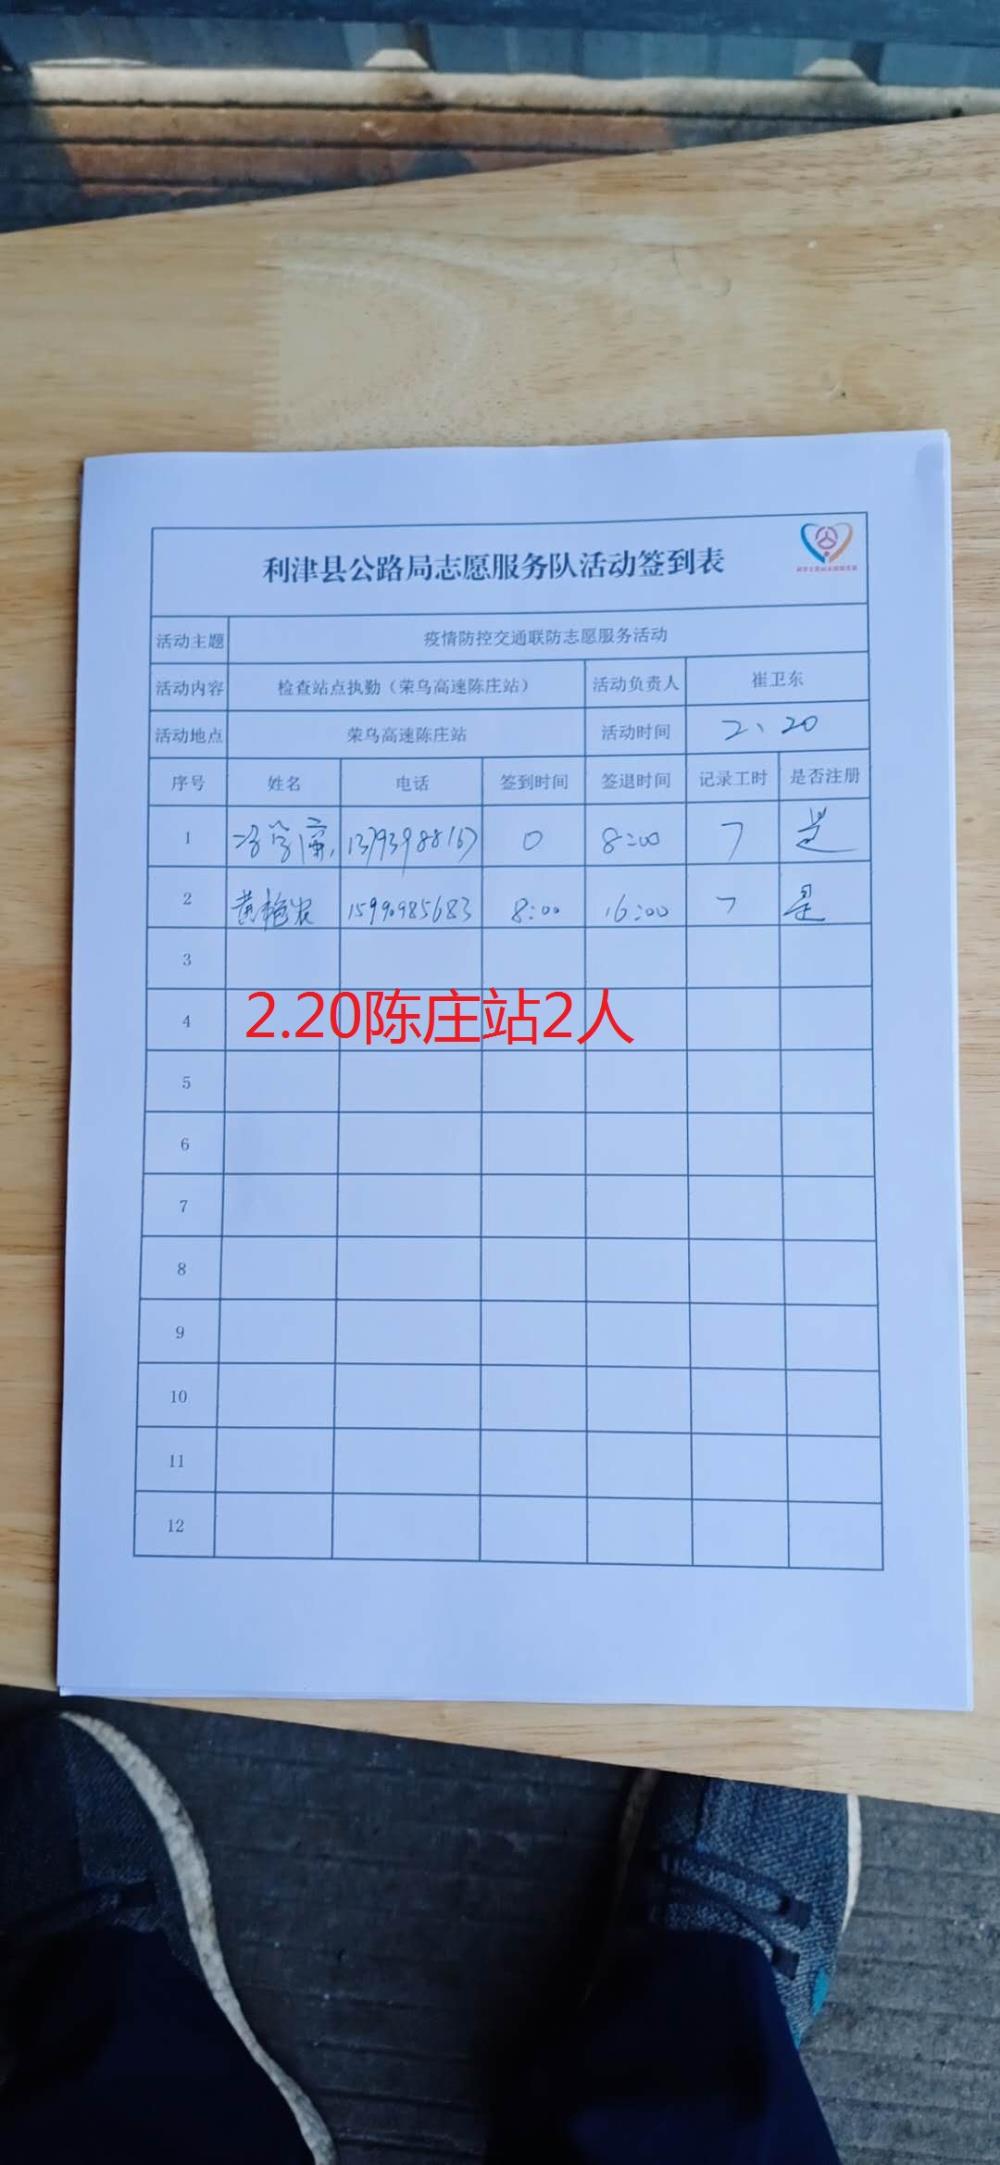 利津县公路局志愿服务队活动签到表
活动主题 疫情防控交通联防志愿服务活动
活动内容 检查站点执勤（荣乌高速陈庄站） 活动负责人 崔卫东
活动地点 荣乌高速陈庄站 活动时间 2、20
序号 姓名 电话 签到时间 签退时间 记录工时 是否注册
1 0 8:00 7 是
2 黄 15990985683 8:00 16:00 7 是
3
2.20陈庄站2人
4
5
6
7
8
9
10
11
12